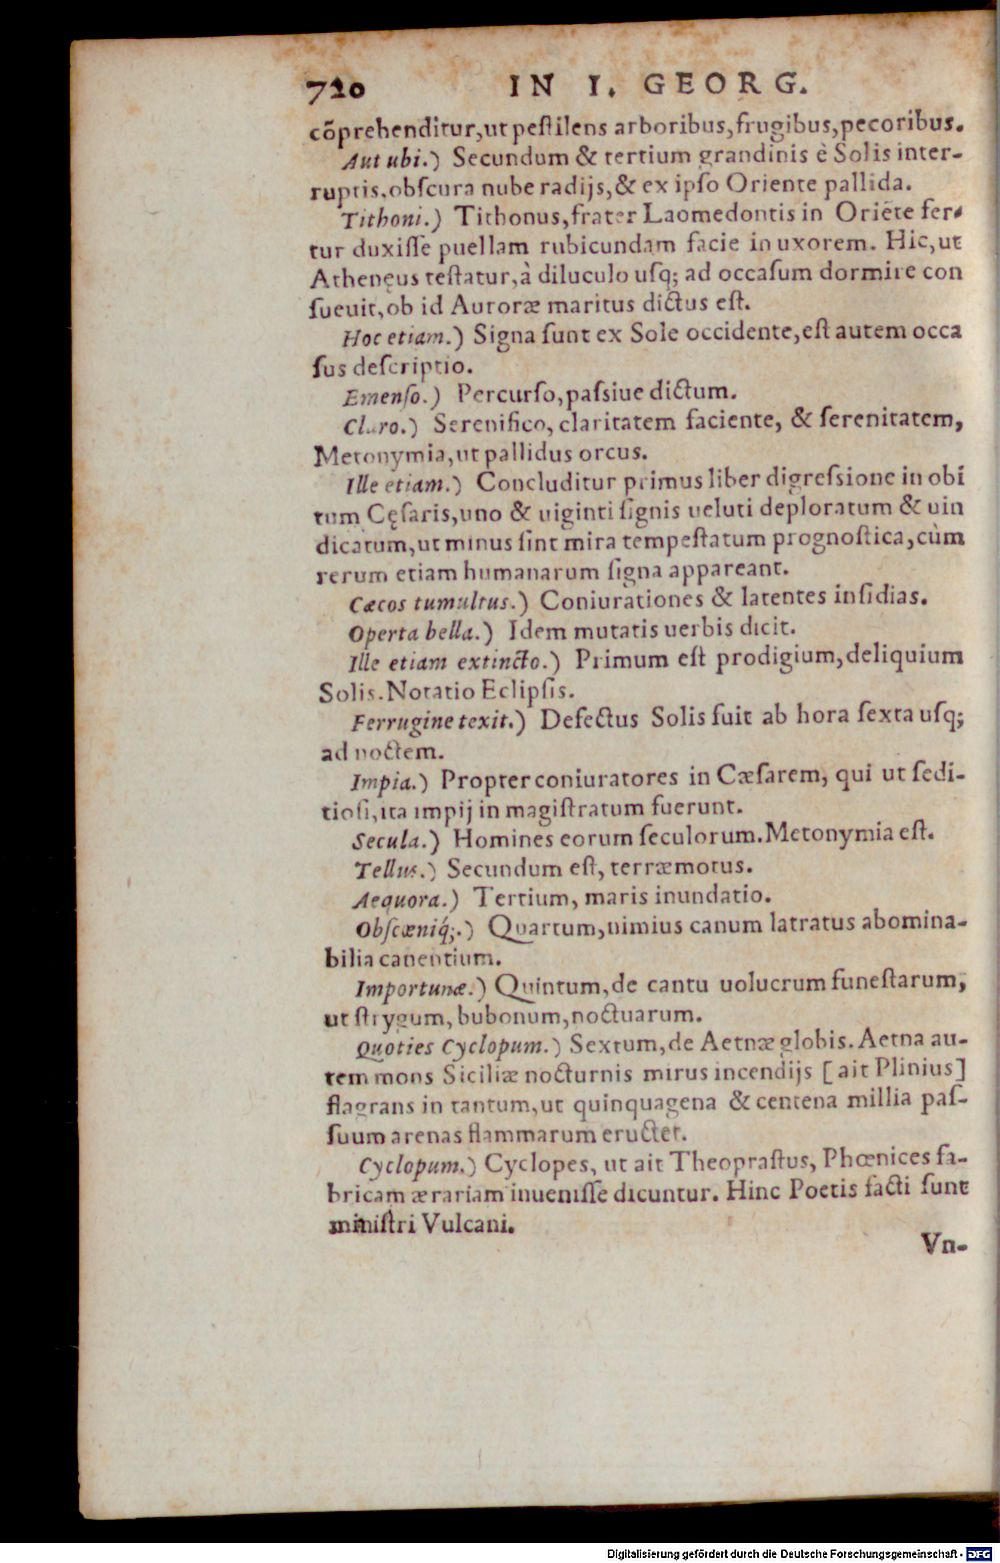 720 IN I. GEORG.
cõprehenditur,ut peſtilens arboribus,frugibus,pecoribus.
Aut ubi.) Secundum & tertium grandinis è Solis inter-
ruptis,obſcura nube radijs,& ex ipſo Oriente pallida.
Tithoni.) Tithonus,frater Laomedontis in Oriẽte fer-
tur duxiſſe puellam rubicundam facie in uxorem. Hic,ut
Athenęus teſtatur,à diluculo uſq; ad occaſum dormire con
ſueuit,ob id Auroræ maritus dictus eſt.
Hoc etiam.) Signa ſunt ex Sole occidente,eſt autem occa
ſus deſcriptio.
Emenſo.) Percurſo,paſsiue dictum.
Claro.) Serenifico, claritatem faciente, & ſerenitatem,
Metonymia,ut pallidus orcus.
Ille etiam.) Concluditur primus liber digreſsione in obi
tum Cęſaris,uno & uiginti ſignis ueluti deploratum & uin
dicatum,ut minus ſint mira tempeſtatum prognoſtica,cùm
rerum etiam humanarum ſigna appareant.
Cæcos tumultus.) Coniurationes & latentes inſidias.
Operta bella.) Idem mutatis uerbis dicit.
Ille etiam extincto.) Primum eſt prodigium,deliquium
Solis.Notatio Eclipſis.
Ferrugine texit.) Defectus Solis fuit ab hora ſexta uſq;
ad noctem.
Impia.) Propter coniuratores in Cæſarem, qui ut ſedi-
tioſi,ita impij in magiſtratum fuerunt.
Secula.) Homines eorum ſeculorum.Metonymia eſt.
Tellus.) Secundum eſt, terræmotus.
Aequora.) Tertium, maris inundatio.
Obſcæniq́;.) Quartum,nimius canum latratus abomina-
bilia canentium.
Importunæ.) Quintum,de cantu uolucrum funeſtarum,
ut ſtrygum, bubonum,noctuarum.
Quoties Cyclopum.) Sextum,de Aetnæ globis. Aetna au-
tem mons Siciliæ nocturnis mirus incendijs [ait Plinius]
flagrans in tantum,ut quinquagena & centena millia paſ-
ſuum arenas flammarum eructet.
Cyclopum.) Cyclopes, ut ait Theopraſtus, Phœnices fa-
bricam ærariam inueniſſe dicuntur. Hinc Poetis facti ſunt
miniſtri Vulcani.
Vn-
Digitalisierung gefördert durch die Deutsche Forschungsgemeinschaft - DFG